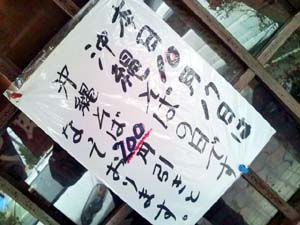 本日10月17日は
沖縄そばの日です
沖縄そば
200円引きと
なております。